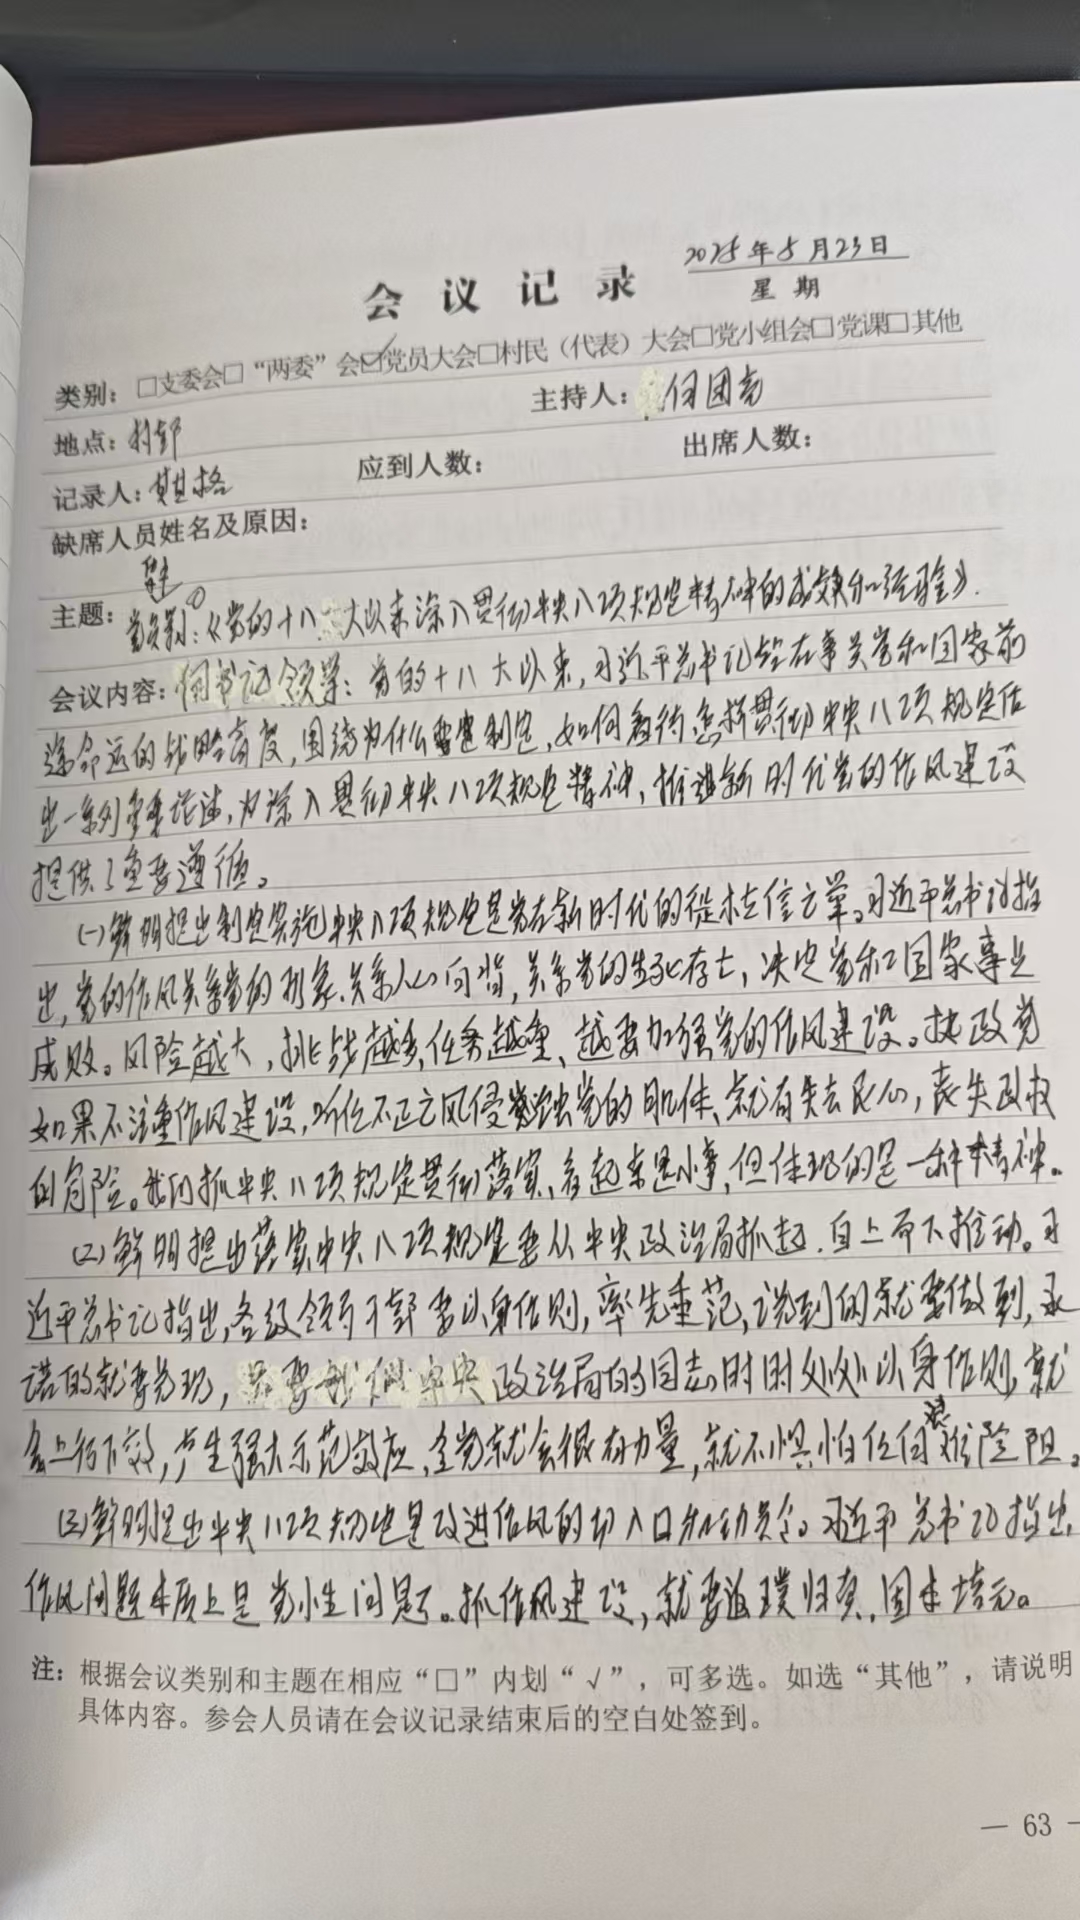 2025年5月23日
会议记录
星期
类别：□支委会□“两委”会☑党员大会□村民（代表）大会□党小组会□党课□其他
地点：村部
主持人：何团亮
记录人：
应到人数：
出席人数：
缺席人员姓名及原因：
主题：①《党的十八大以来深入贯彻中央八项规定精神的成效和经验》.
会议内容：何书记领学：党的十八大以来，习近平总书记站在事关党和国家前
途命运的战略高度，围绕为什么要制定，如何看待怎样贯彻中央八项规定作
出一系列重要论述，为深入贯彻中央八项规定精神，推进新时代党的作风建设
提供了重要遵循。
(一)鲜明提出制定实施中央八项规定是党在新时代的徙木立信之举。习近平总书记指
出，党的作风关系党的形象、关系人心向背，关系党的生死存亡，决定党和国家事业
成败。风险越大，挑战越多，任务越重、越要加强党的作风建设。执政党
如果不注重作风建设，听任不正之风侵蚀党的肌体、就有失去民心，丧失政权
的危险。我们抓中央八项规定贯彻落实，看起来是小事，但体现的是一种精神。
(二)鲜明提出落实中央八项规定要从中央政治局抓起，自上而下推动。习
近平总书记指出，各级领导干部要以身作则，率先垂范，说到的就要做到，承
诺的就要兑现，只要我们中央政治局的同志时时处处以身作则，就
会上行下效，产生强大示范效应，全党就会很有力量，就不惧怕任何艰难险阻。
(三)鲜明提出中央八项规定是改进作风的切入口和动员令。习近平总书记指出，
作风问题本质上是党性问题。抓作风建设，就要返璞归真，固本培元。
注：根据会议类别和主题在相应“□”内划“√”，可多选。如选“其他”，请说明
具体内容。参会人员请在会议记录结束后的空白处签到。
— 63 —